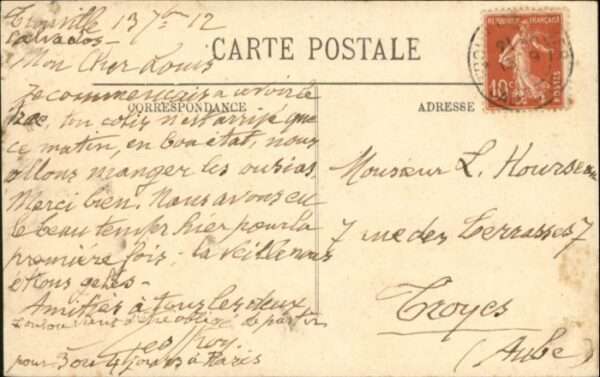 Trouville 13 7bre 12
Calvados -
CARTE POSTALE
Mon Cher Louis
Je commençais à
CORRESPONDANCE
ton colis n'est arrivé que
ce matin, en bon état, nous
allons manger les
Merci bien. Nous avons eu
le beau temps hier pour la
première fois - la veille nous
étions gelés -
Amitiés à tous les deux
de partir
pour 3 ou 4 jours à Paris
REPUBLIQUE FRANÇAISE
10c
POSTES
ADRESSE
Monsieur L. Hourseau
7 rue des Terrasses 7
Troyes
(Aube)